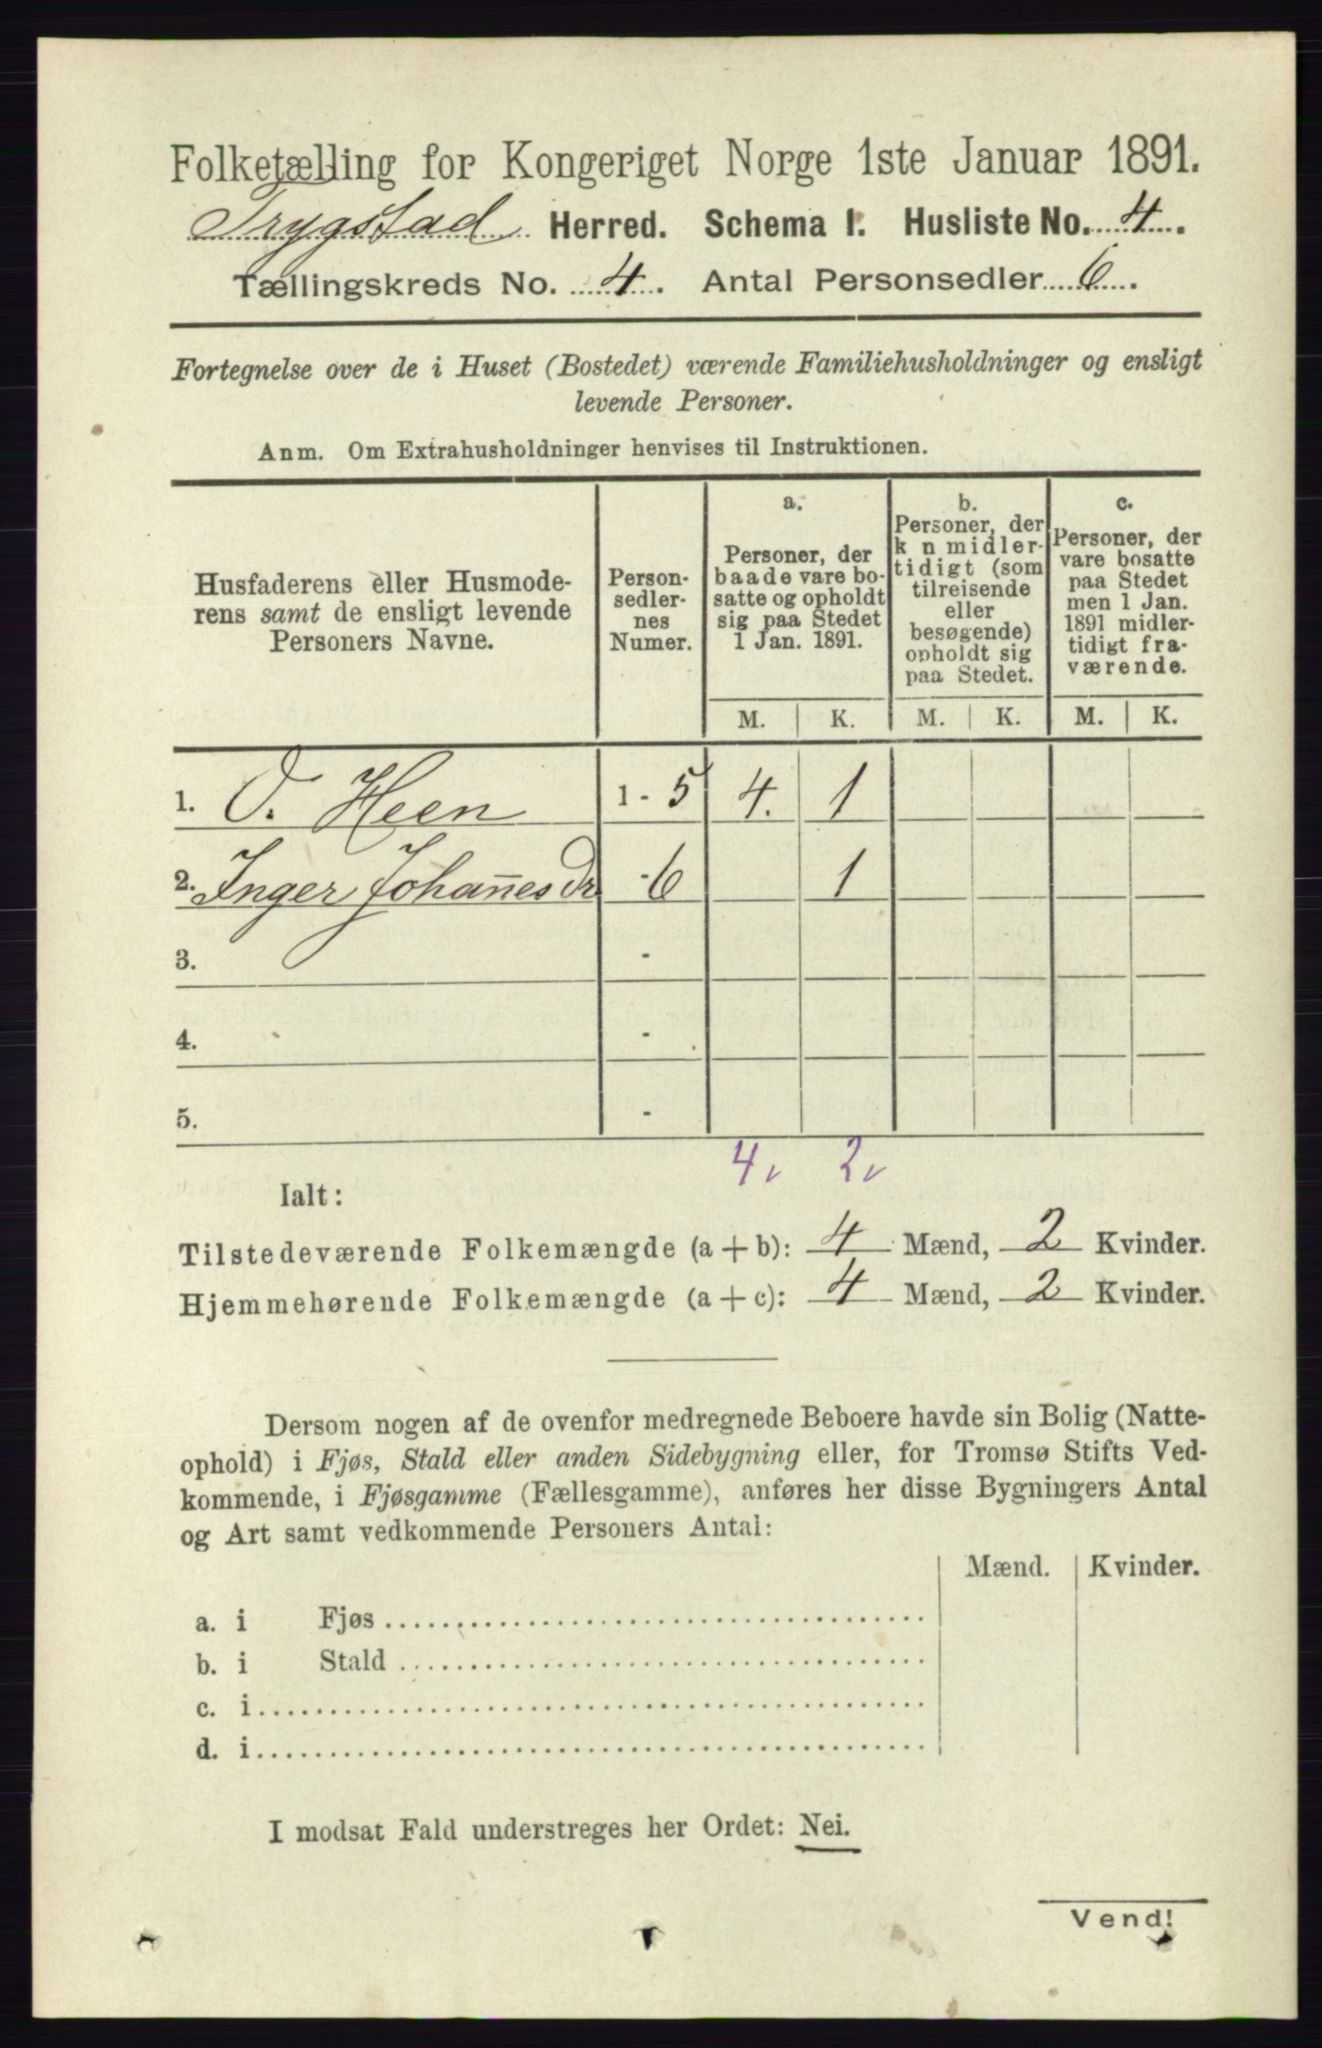 Folketælling for Kongeriget Norge 1ste Januar 1891.
Trygstad Herred. Schema I. Husliste No. 4.
Tællingskreds No. 4. Antal Personsedler 6.
Fortegnelse over de i Huset (Bostedet) værende Familiehusholdninger og ensligt
levende Personer.
Anm. Om Extrahusholdninger henvises til Instruktionen.
Husfaderens eller Husmode-
rens samt de ensligt levende
Personers Navne.
Person-
sedler-
nes
Numer.
a.
Personer, der
baade vare bo-
satte og opholdt
sig paa Stedet
1 Jan. 1891.
b.
Personer, der
k n midler-
tidigt (som
tilreisende
eller
besøgende)
opholdt sig
paa Stedet.
c.
Personer, der
vare bosatte
paa Stedet
men 1 Jan.
1891 midler-
tidigt fra-
værende.
M. K. M. K. M. K.
1. O. Heen 1 - 5 4. 1
2. Inger Johan̄esdr - 6 1
3. -
4. -
5. -
4 2
Ialt:
Tilstedeværende Folkemængde (a + b): 4 Mænd, 2 Kvinder.
Hjemmehørende Folkemængde (a + c): 4 Mænd, 2 Kvinder.
Dersom nogen af de ovenfor medregnede Beboere havde sin Bolig (Natte-
ophold) i Fjøs, Stald eller anden Sidebygning eller, for Tromsø Stifts Ved-
kommende, i Fjøsgamme (Fællesgamme), anføres her disse Bygningers Antal
og Art samt vedkommende Personers Antal:
Mænd. Kvinder.
a. i Fjøs
b. i Stald
c. i
d. i
I modsat Fald understreges her Ordet: Nei.
Vend!